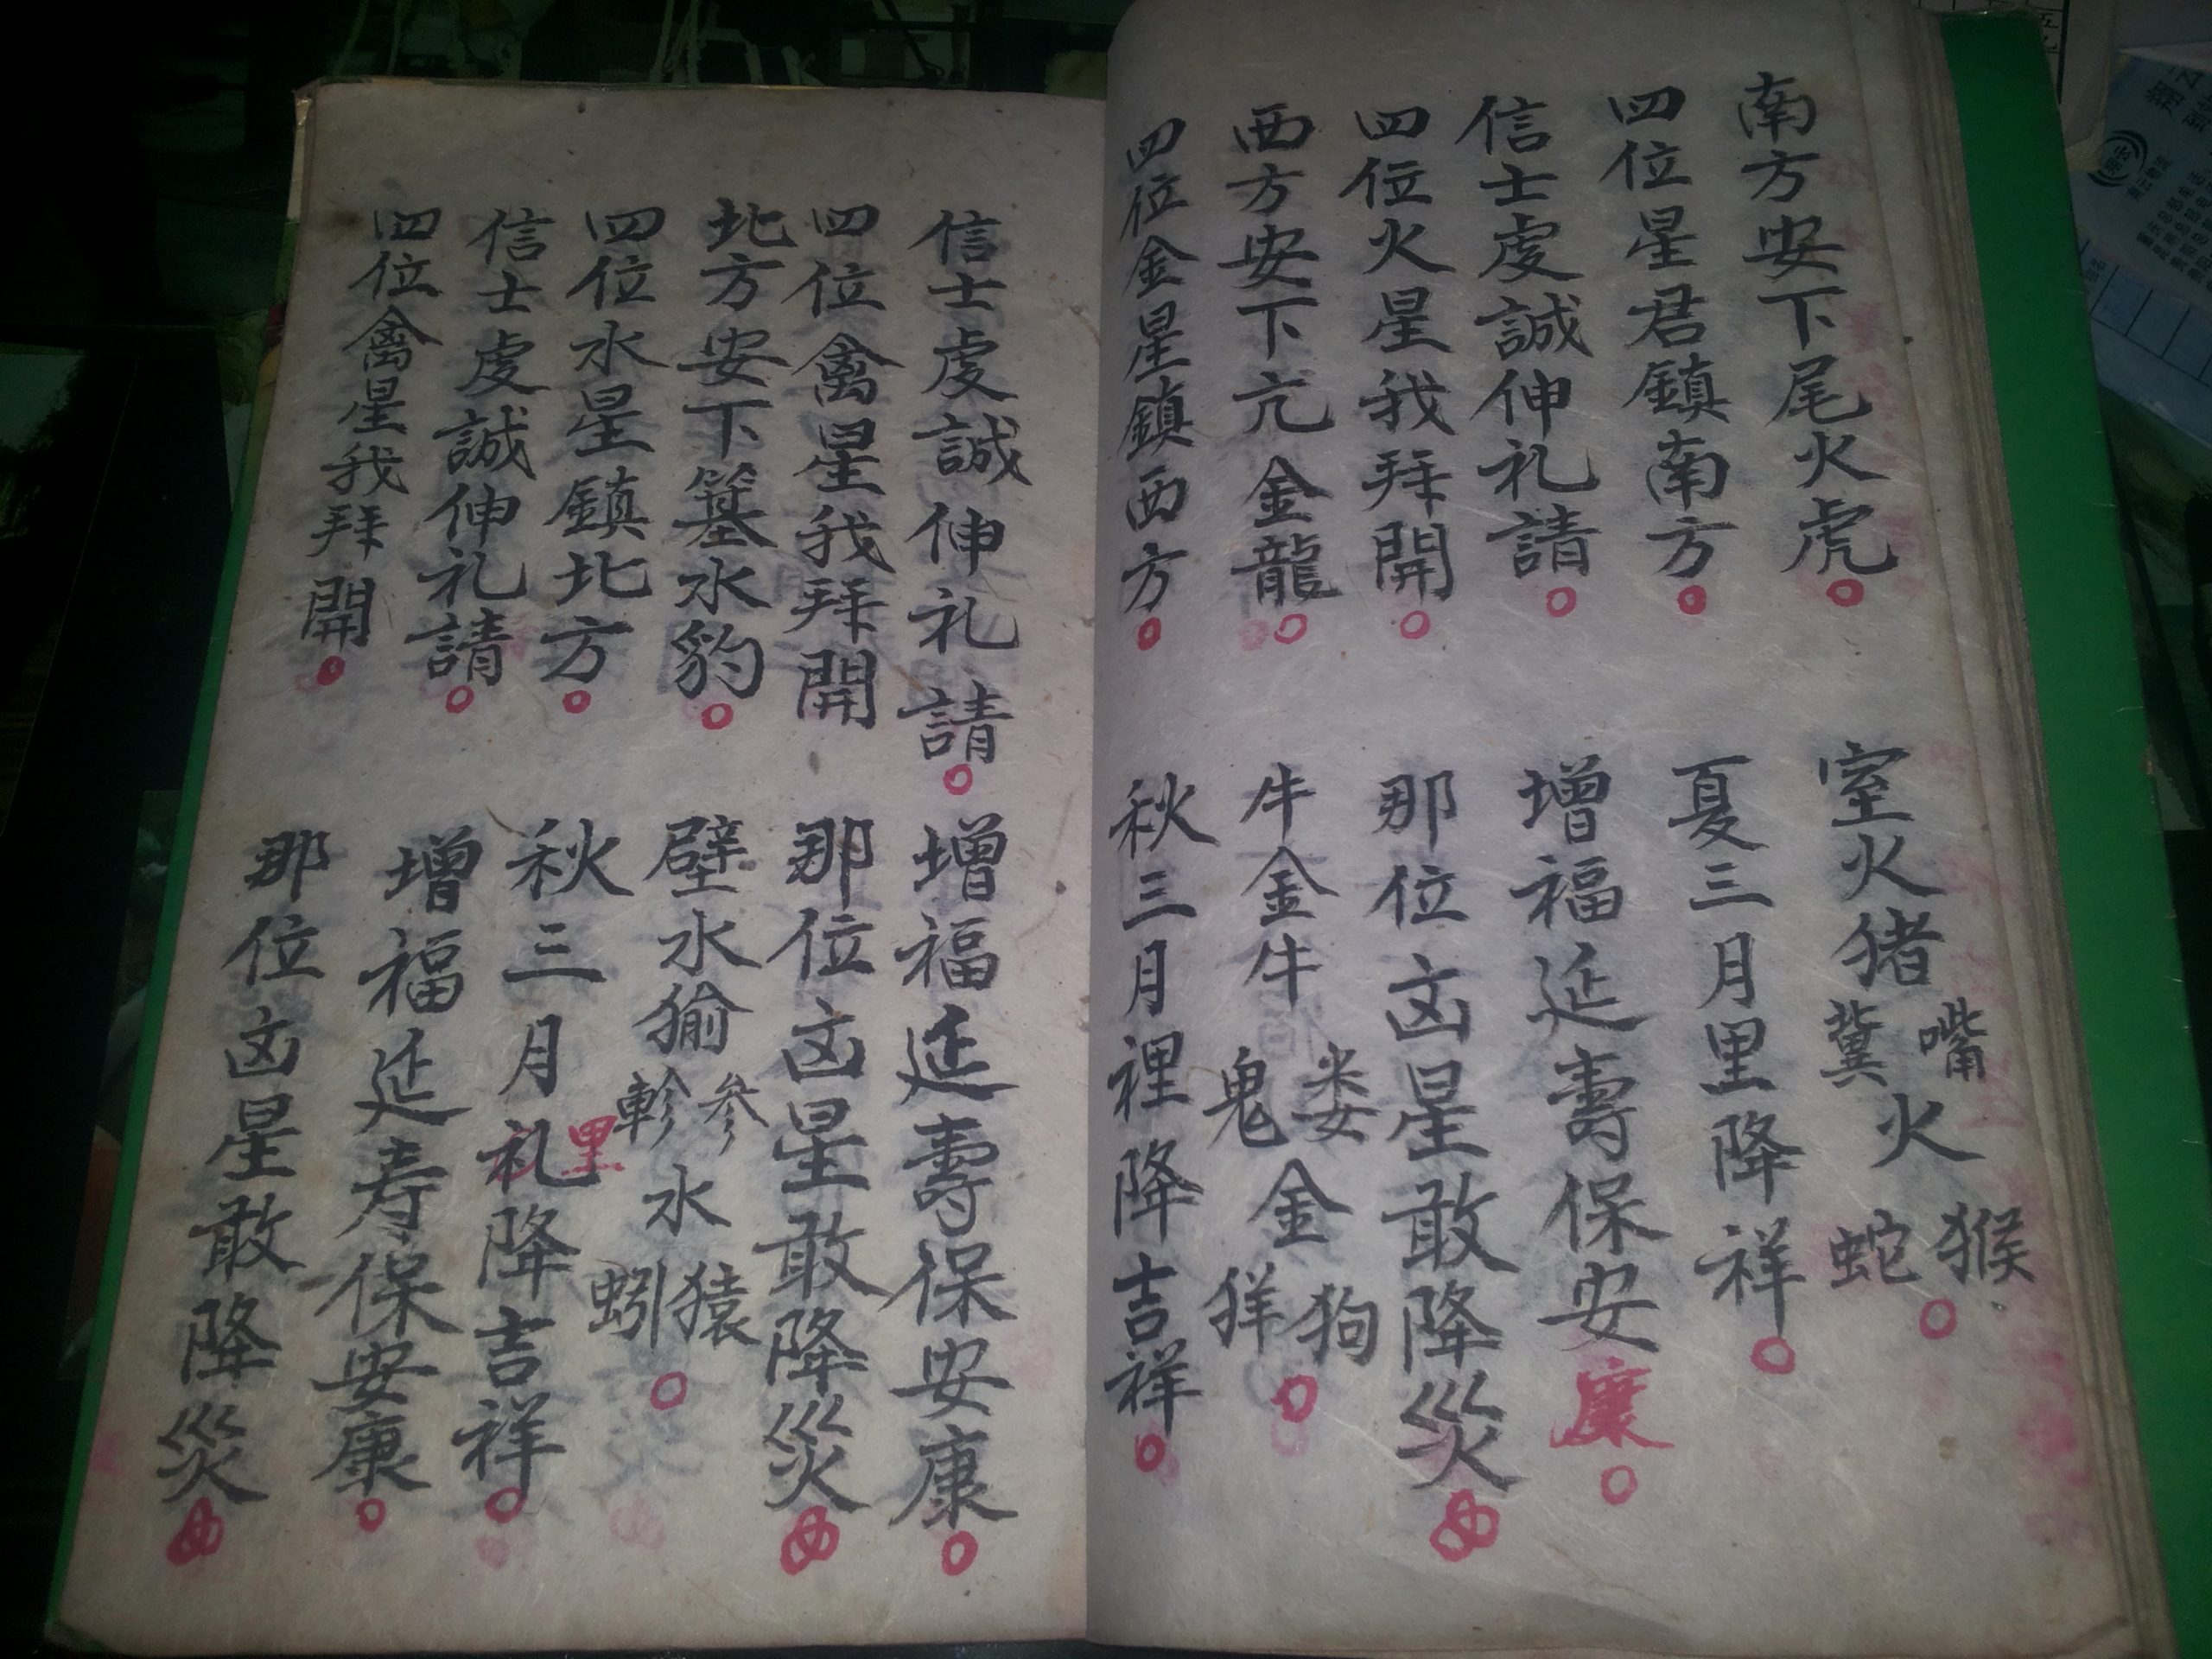 南方安下尾火虎。室火猪嘴兾火猴蛇。
四位星君鎮南方。夏三月里降祥。
信士虔誠伸礼請。增福延壽保安康。
四位火星我拜開。那位凶星敢降災
西方安下亢金龍。牛金牛娄鬼金狗羊。
四位金星鎮西方。秋三月裡降吉祥。
信士虔誠伸礼請。增福延壽保安康。
四位禽星我拜開 那位凶星敢降災
北方安下箕水豹。壁水貐参軫水猿蚓。
四位水星鎮北方。秋三月礼里降吉祥。
信士虔誠伸礼請。增福延寿保安康。
四位禽星我拜開。那位凶星敢降災